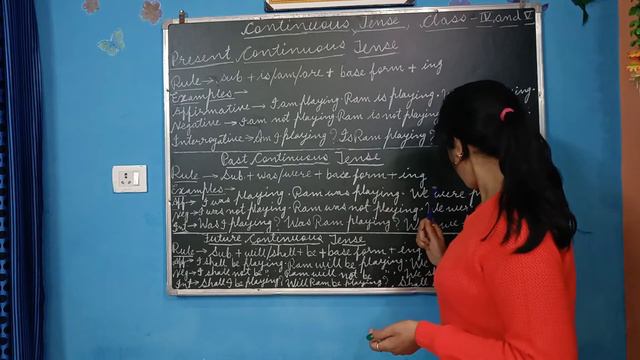 Continuous Tense, Class - IV and V
Present Continuous Tense
Rule → sub + is/am/are + base form + ing
Examples -
Affirmative → I am playing. Ram is playing.
Negative → I am not playing. Ram is not playing
Interrogative → Am I playing? Is Ram playing?
Past Continuous Tense
Rule → Sub + was/were + base form + ing
Examples -
Aff → I was playing. Ram was playing. We were
Neg → I was not playing. Ram was not playing.
Int → Was I playing? Was Ram playing?
Future Continuous Tense
Rule → Sub + will/shall + be + base form + ing
Aff → I shall be playing. Ram will be playing. We
Neg → I shall not be " " Ram will not be
Int → Shall I be playing? Will Ram be playing? Shall